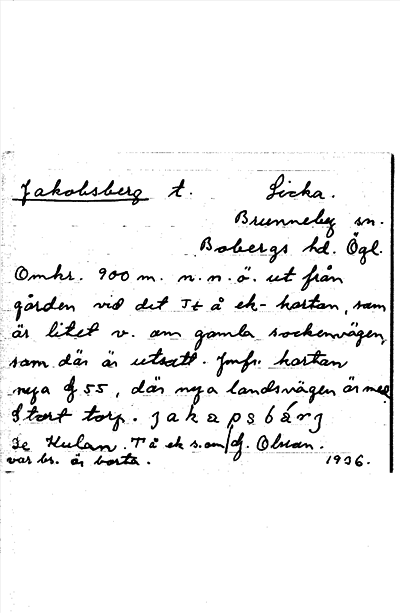 Jakobsberg t. Licka.
Brunneby sn.
Bobergs hd. Ögl.
Omkr. 900 m. n.n.ö. ut från
gården vid det Jt å ek-kartan, som
är litet v. om gamla sockenvägen,
som där är utsatt. Jmfr. kartan
nya 55, där nya landsvägen är med
Stort torp. jakapsbárj
Se Kulan. T å ek s.om Olsson.
var bs. är borta. 1936.